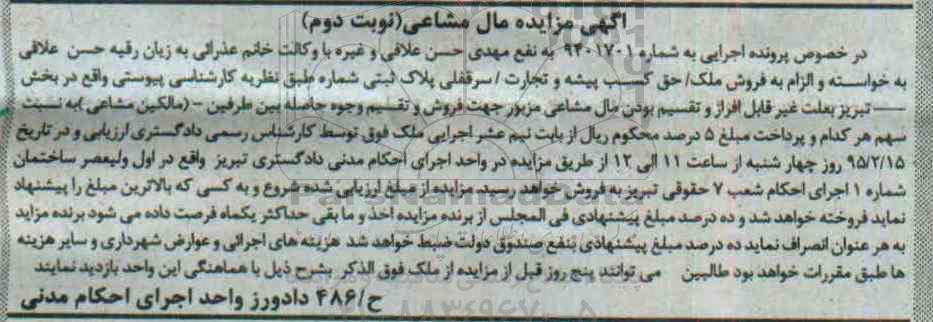 آگهی مزایده مال مشاعی(نوبت دوم)
در خصوص پرونده اجرایی به شماره ۹۴۰۱۷۰۱ به نفع مهدی حسن علافی و غیره با وکالت خانم عذرائی به زیان رقیه حسن علافی
به خواسته و الزام به فروش ملک/ حق کسب پیشه و تجارت / سرقفلی پلاک ثبتی شماره طبق نظریه کارشناسی پیوستی واقع در بخش
—— تبریز بعلت غیر قابل افراز و تقسیم بودن مال مشاعی مزبور جهت فروش و تقسیم وجوه حاصله بین طرفین - (مالکین مشاعی )به نسبت
سهم هر کدام و پرداخت مبلغ ۵ درصد محکوم ریال از بابت نیم عشر اجرایی ملک فوق توسط کارشناس رسمی دادگستری ارزیابی و در تاریخ
۹۵/۲/۱۵ روز چهار شنبه از ساعت ۱۱ الی ۱۲ از طریق مزایده در واحد اجرای احکام مدنی دادگستری تبریز واقع در اول ولیعصر ساختمان
شماره ۱ اجرای احکام شعب ۷ حقوقی تبریز به فروش خواهد رسید. مزایده از مبلغ ارزیابی شده شروع و به کسی که بالاترین مبلغ را پیشنهاد
نماید فروخته خواهد شد و ده درصد مبلغ پیشنهادی فی المجلس از برنده مزایده اخذ و ما بقی حداکثر یکماه فرصت داده می شود برنده مزاید
به هر عنوان انصراف نماید ده درصد مبلغ پیشنهادی بنفع صندوق دولت ضبط خواهد شد هزینه های اجرائی و عوارض شهرداری و سایر هزینه
ها طبق مقررات خواهد بود طالبین می توانند پنج روز قبل از مزایده از ملک فوق الذکر بشرح ذیل با هماهنگی این واحد بازدید نمایند
ح/۴۸۶ دادورز واحد اجرای احکام مدنی